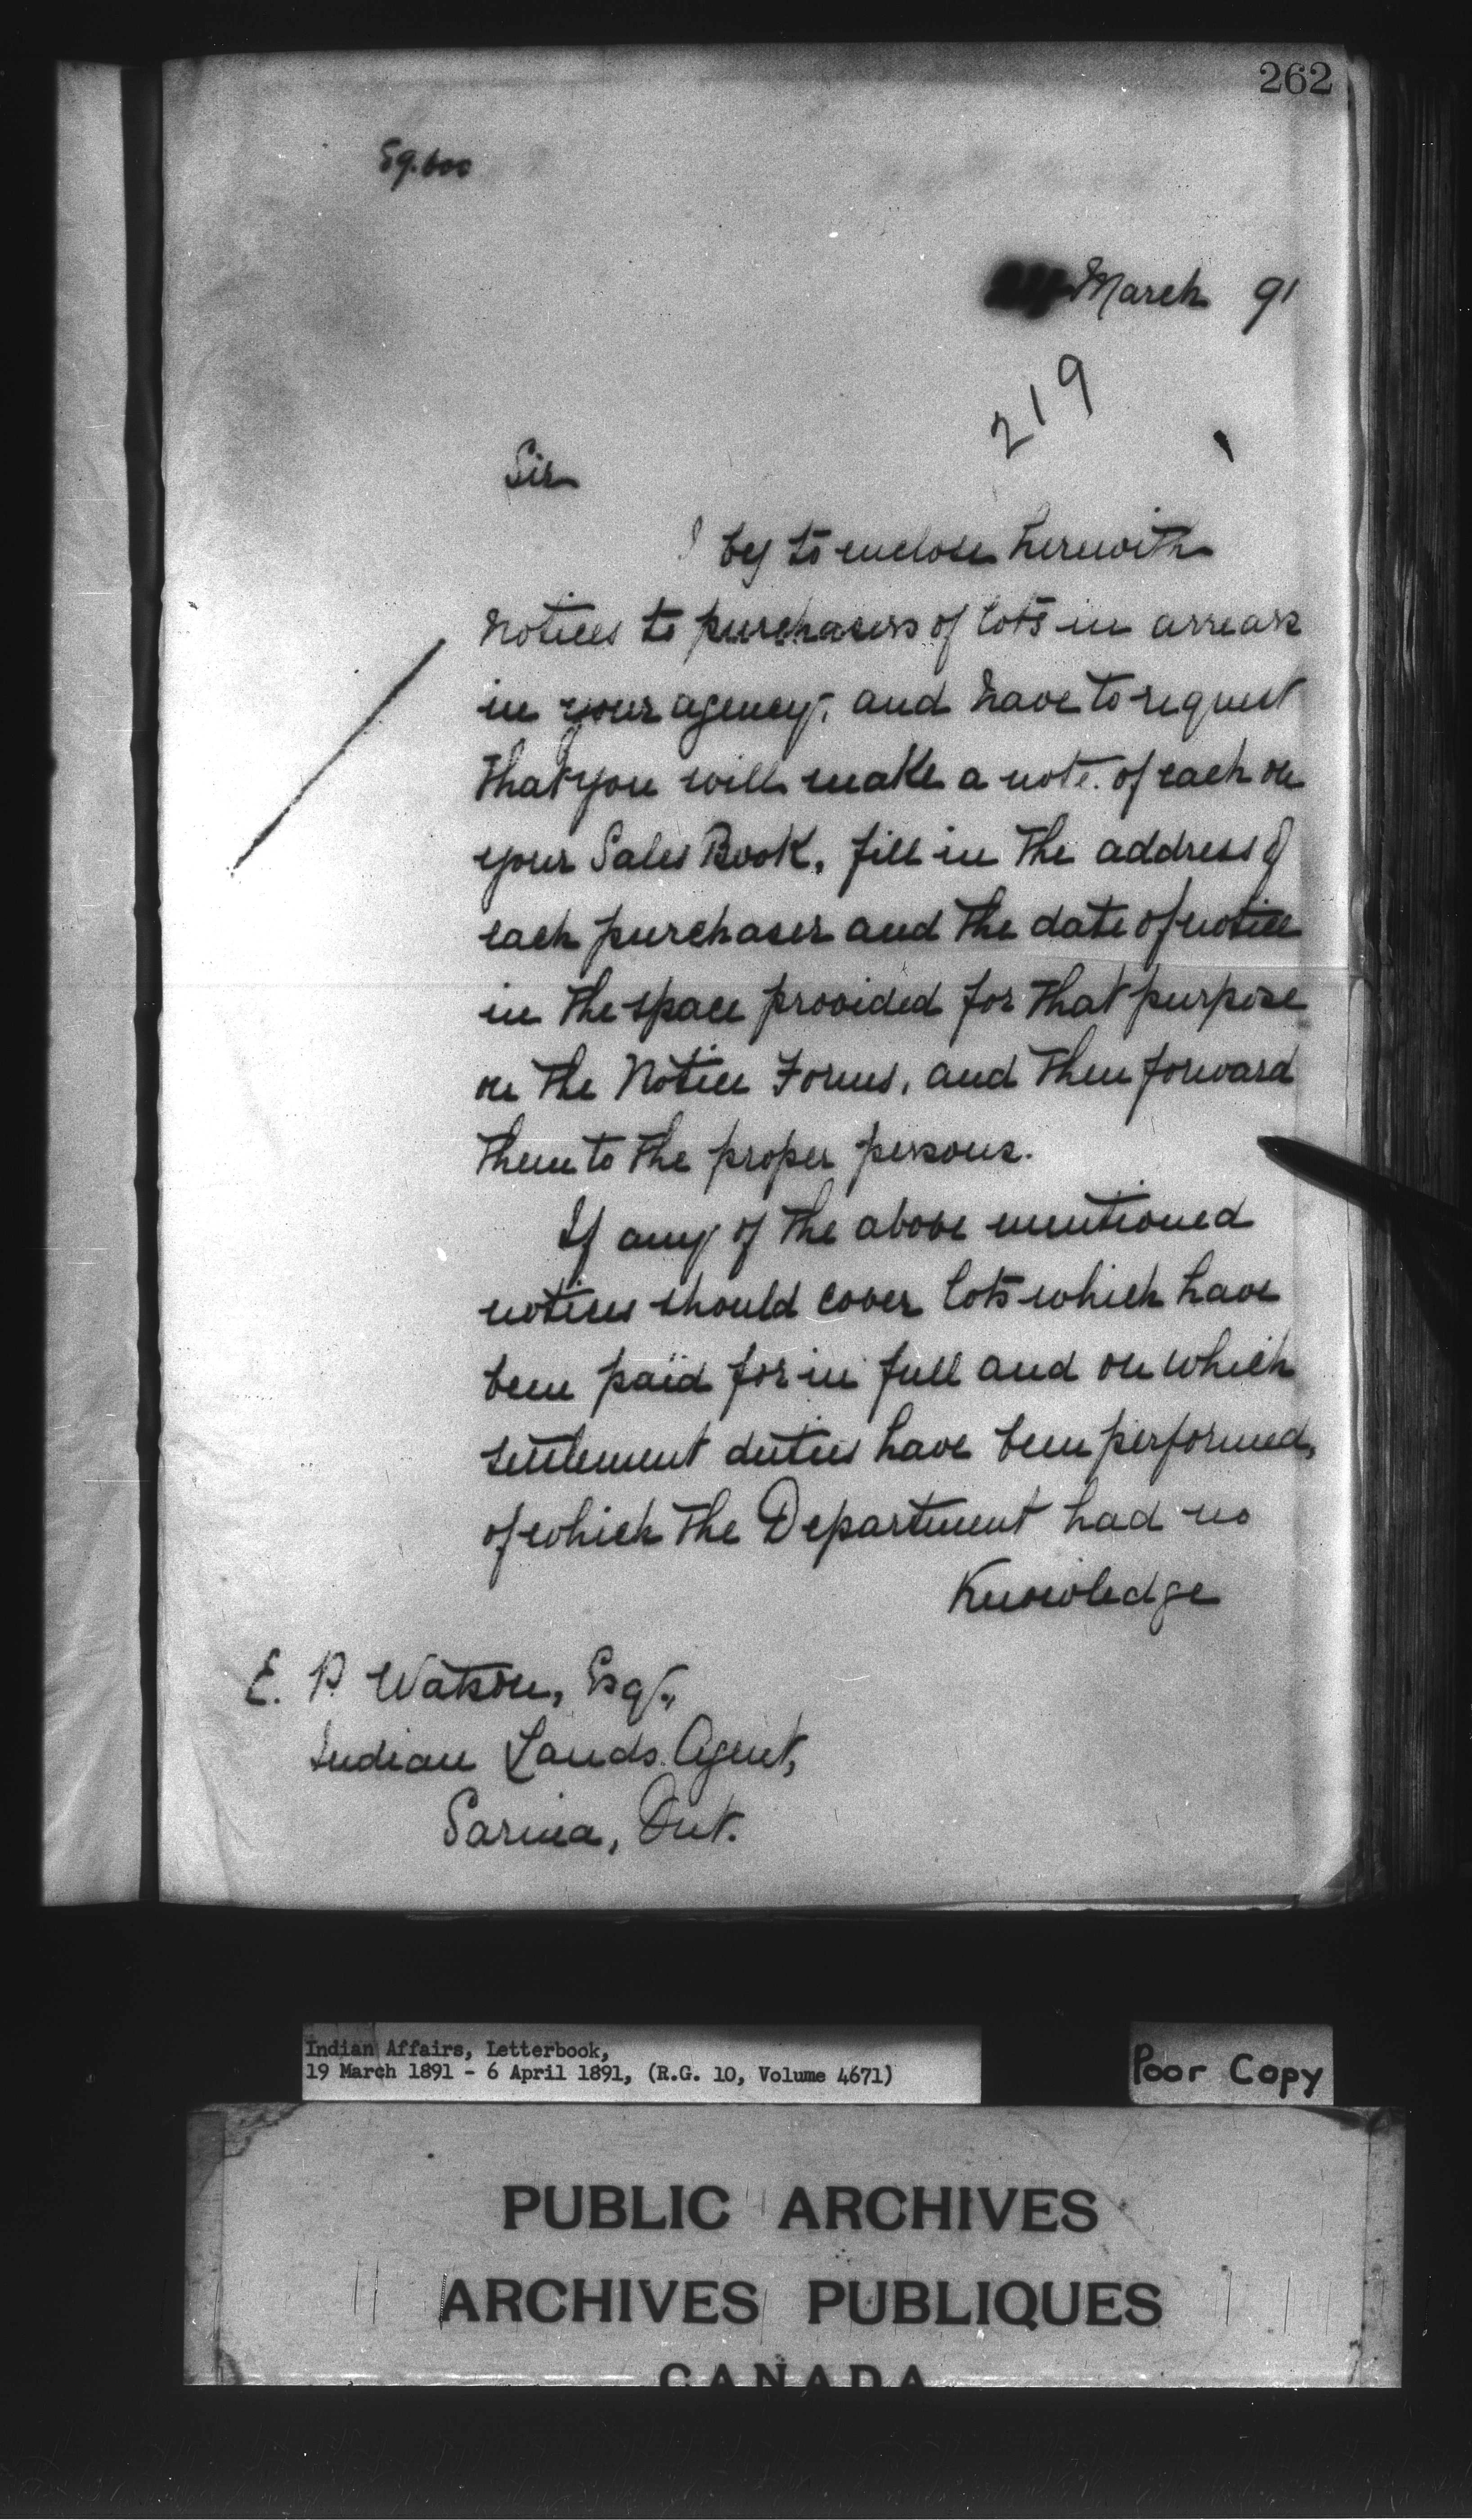 262
59.600
March 91
219
Sir
I beg to enclose herewith
Notices to purchasers of lots in arrears
in your agency, and have to request
that you will make a note of each on
your Sales Book, fill in the address of
each purchaser and the date of notice
in the space provided for that purpose
on the Notice Forms, and then forward
them to the proper persons.
If any of the above mentioned
notices should cover lots which have
been paid for in full and on which
settlement duties have been performed,
of which the Department had no
Knowledge
E. P. Watson, Esqr.,
Indian Lands Agent,
Sarnia, Ont.
Indian Affairs, Letterbook,
19 March 1891 - 6 April 1891, (R.G. 10, Volume 4671)
Poor Copy
PUBLIC ARCHIVES
ARCHIVES PUBLIQUES
CANADA